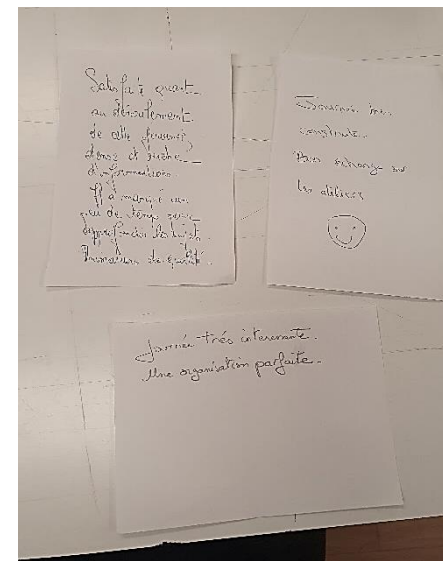 Satisfaite quant
au déroulement
de cette journée,
dense et riche
d'informations.
Il a manqué un
peu de temps pour
approfondir
Animateurs de qualité.
Journée très
Pour échange sur
les délices
Journée très interessante.
Une organisation parfaite.